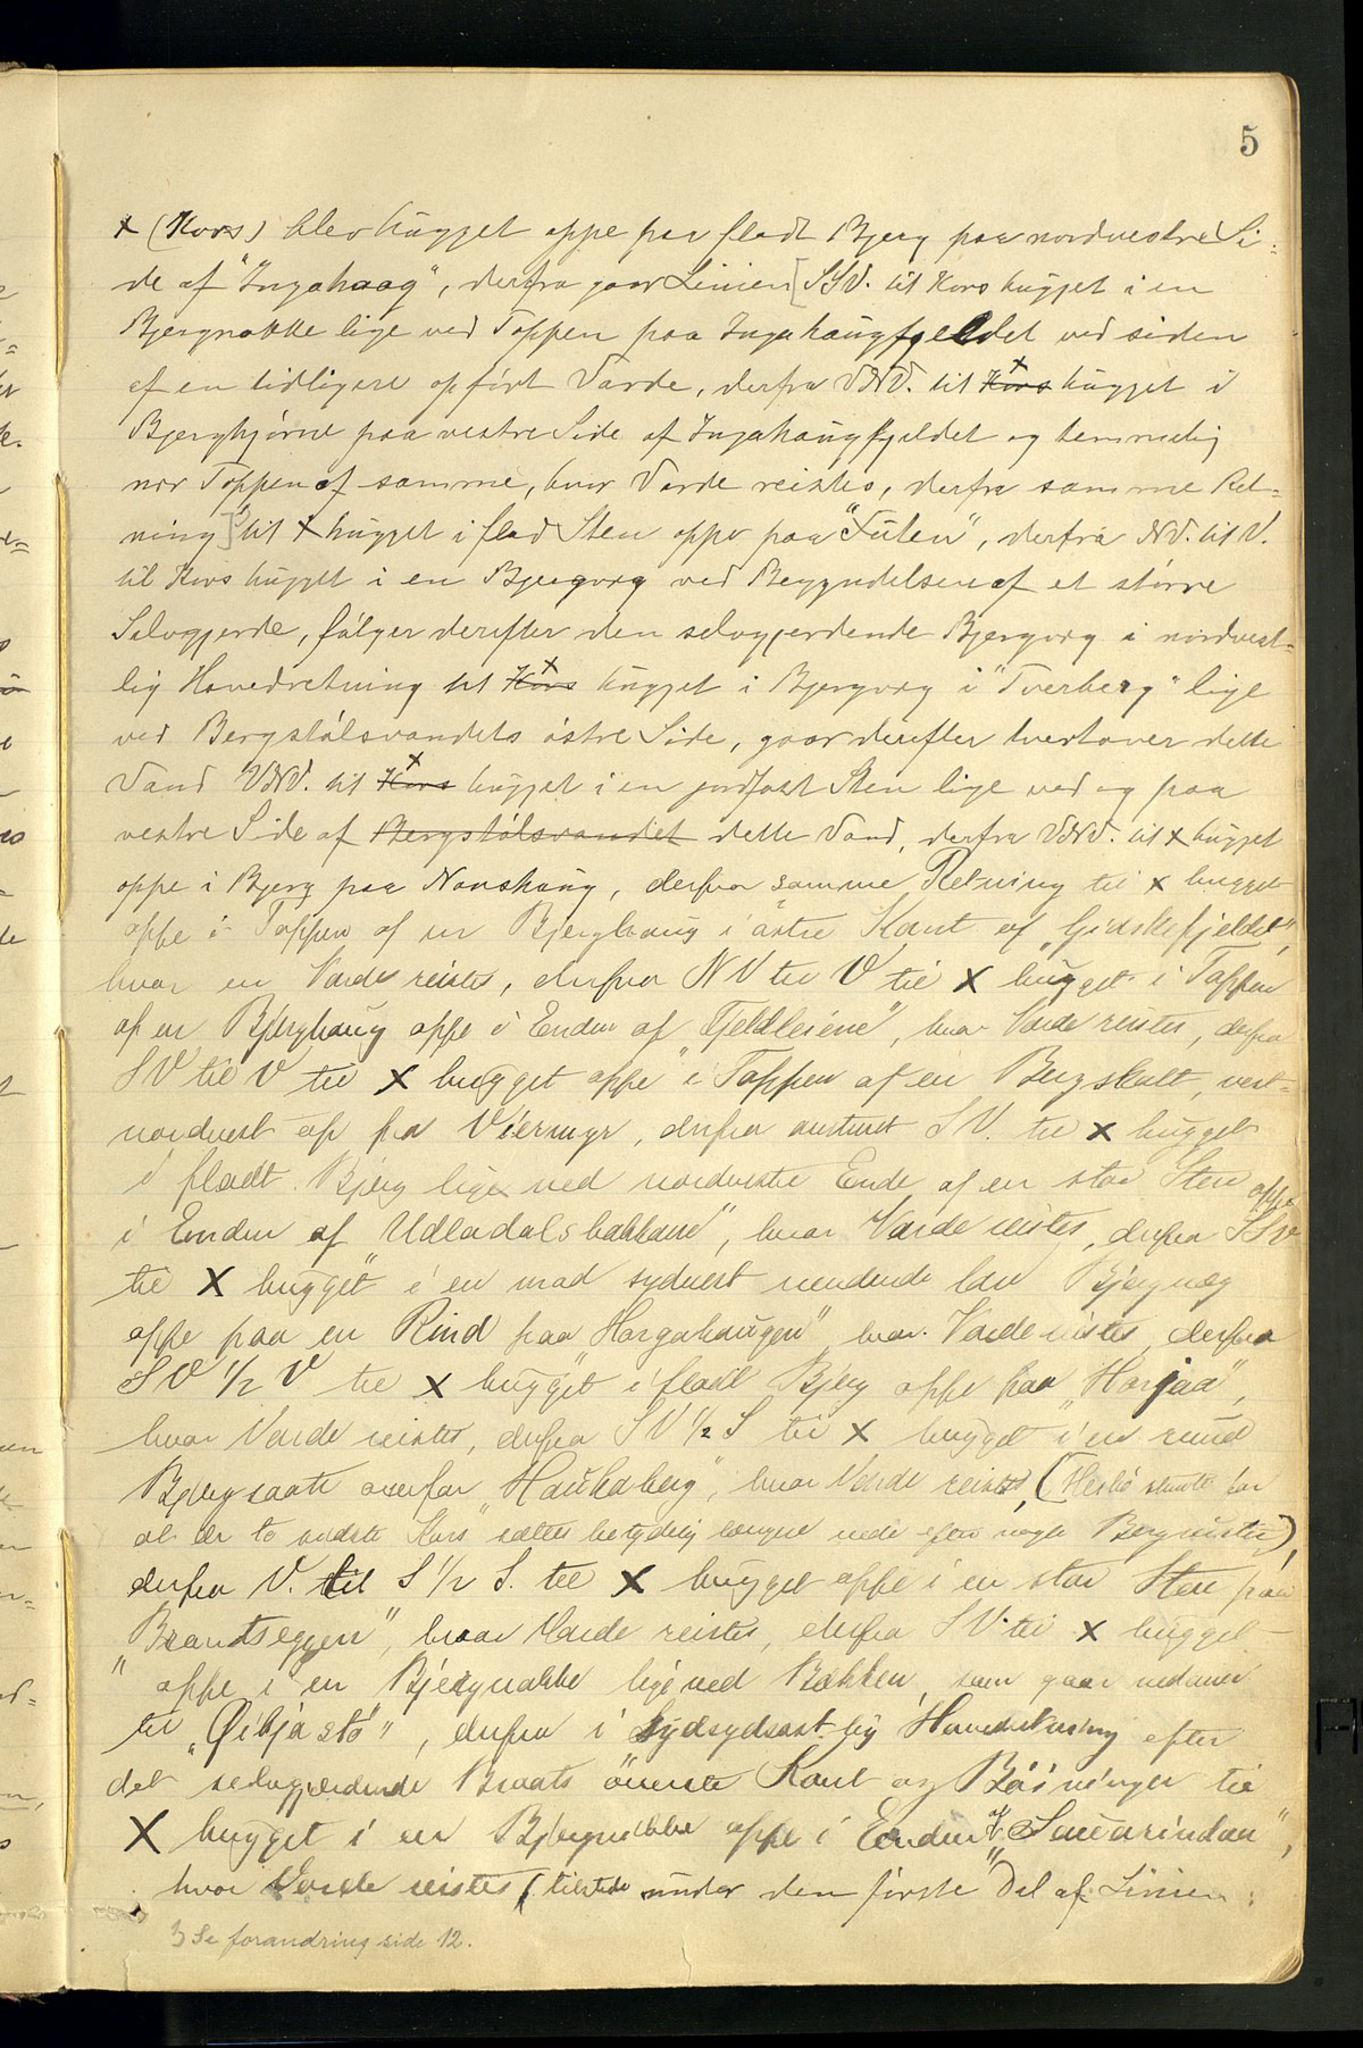 5
x (Kors) blev hugget oppe paa fladt Bjerg paa nordvestre Si-
de af "Ingahaag", derfra gaar Linien [SSV. til Kors hugget i en
Bjergnakke lige ved Toppen paa Ingahaugfjeldet ved siden
af en tidligere opført Varde, derfra VNV. til x hugget i
Bjerghjørne paa vestre Side af Ingahaugfjeldet og temmelig
nær Toppen af samme, hvor Varde reistes, derfra samme Ret-
ning] til x hugget i flad Sten oppe paa "Futen", derfra NV. til V.
til Kors hugget i en Bjergvæg ved Begyndelsen af et større
Selvgjerde, følger derefter den selvgjerdende Bjergvæg i nordvest-
lig Hovedretning til x hugget i Bjergvæg i "Tverberg" lige
ved Bergstølsvandets østre Side, gaar derefter tvertover dette
Vand VNV. til x hugget i en jordfast Sten lige ved og paa
vestre Side af Bergstølsvandet dette Vand, derfra VNV. til x hugget
oppe i Bjerg paa Nonshaug, derfra samme Retning til x hugget
oppe i Toppen af en Bjerghaug i østre Kant af "Gidskefjeldet",
hvor en Varde reistes, derfra NV til V til x hugget i Toppen
af en Bjerghaug oppe i Enden af "Fjeldleiene", hvor Varde reistes, derfra
SV til V til x hugget oppe i Toppen af en Bergskalt, vest-
nordvest op fra Viermyr, derfra omtrent SV. til x hugget
i fladt Bjerg lige ved nordvestre Ende af en stor Sten oppe
i Enden af "Udladalsbakkane", hvor Varde reistes, derfra SSV
til x hugget i en mod sydvest vendende lav Bjergvæg
oppe paa en Rind paa "Horgahaugen" hvor Varde reistes, derfra
SV 1/2 V til x hugget i fladt Bjerg oppe paa "Horjaa",
hvor Varde reistes, derfra SV 1/2 S til x hugget i en rund
Bjergsaate overfor "Haukaberg", hvor Varde reistes, (Hesbø paastod for
at de to sidste Kors sattes betydelig længere nede efter nogle Bergrister),
derfra V. til S 1/2 S. til x hugget oppe i en stor Sten paa
"Brandseggen", hvor Varde reistes, derfra SV. til x hugget
oppe i en Bjergnakke lige ved Bækken, som gaar nedover
til "Øikjastø", derfra i sydsydøstlig Hovedretning efter
det selvgjærdende Braats øverste Kant og Bøininger til
x hugget i en Bjergnibbe oppe i Enden af "Sauarindaa",
hvor Varde reistes (tilstede under den første Del af Linien:
) Se forandring side 12.